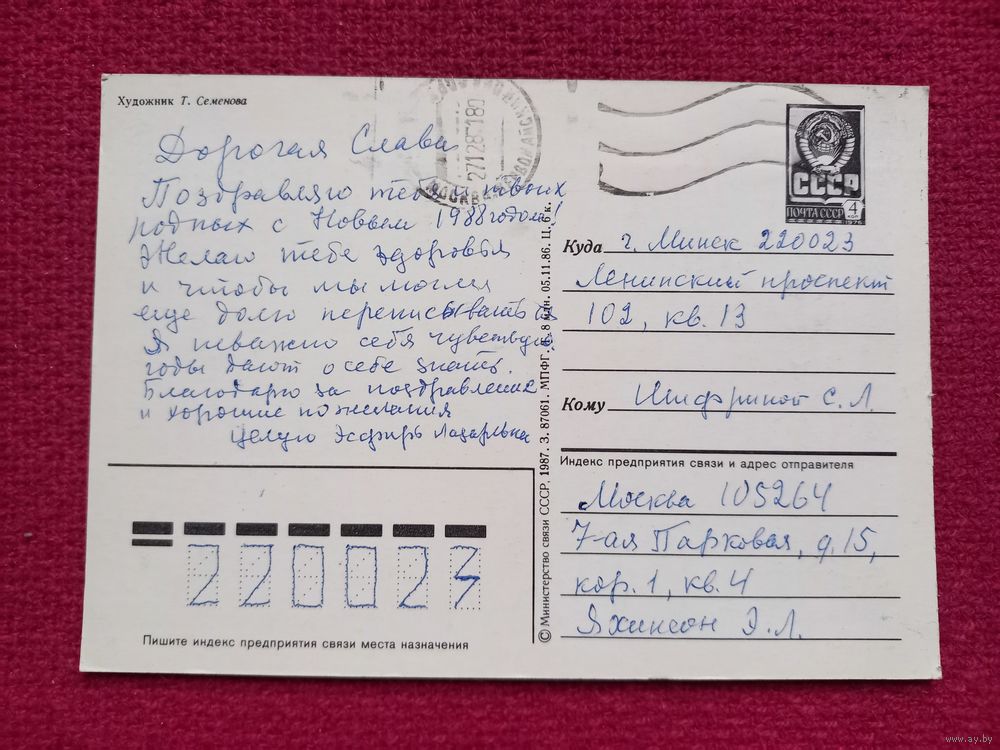 Художник Т. Семенова
Дорогая Слава
Поздравляю тебя и твоих
родных с Новым 1988 годом!
Желаю тебе здоровья
и чтобы мы могли
еще долго переписываться
Я неважно себя чувствую
годы дают о себе знать.
Благодарю за поздравление
и хорошие пожелания
целую Эсфирь Лазаревна
271287180
МОСКВА
СССР
ПОЧТА СССР
4
КОП
1976
Куда г. Минск 220023
Ленинский проспект
102, кв. 13
Кому Шифриной С. Л.
Индекс предприятия связи и адрес отправителя
Москва 105264
7-ая Парковая, д. 15,
кор. 1, кв. 4
Яхинсон Э. Л.
220023
Пишите индекс предприятия связи места назначения
© Министерство связи СССР, 1987. З. 87061. МПФГ. 8 млн. 05.11.86. Ц. 6 к.
www.ay.by